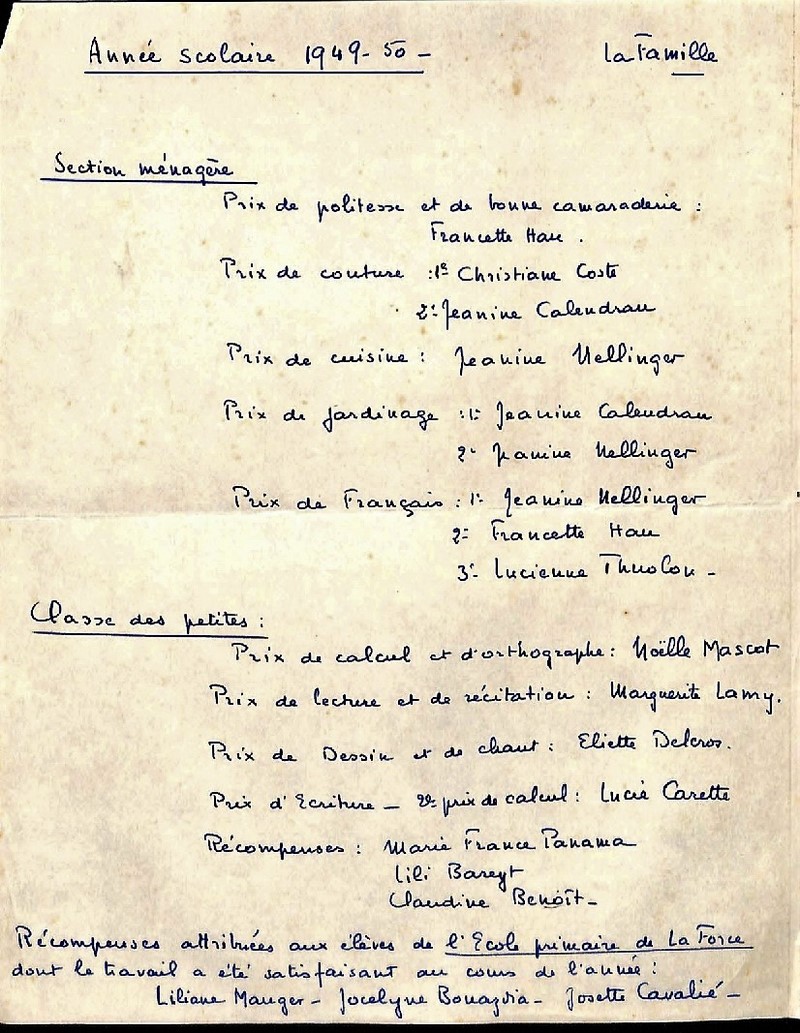 Année scolaire 1949-50 - La Famille
Section ménagère
Prix de politesse et de bonne camaraderie :
Francette Hau .
Prix de couture : 1e Christiane Coste
2e Jeanine Calendrau
Prix de cuisine : Jeanine Nellinger
Prix de jardinage : 1e Jeanine Calendrau
2e Jeanine Nellinger
Prix de Français : 1e Jeanine Nellinger
2e Francette Hau
3e Lucienne -
Classe des petites :
Prix de calcul et d'orthographe : Noëlle Mascot
Prix de lecture et de récitation : Marguerite Lamy.
Prix de Dessin et de chant : Eliette Delcros.
Prix d'Ecriture - 2e prix de calcul : Lucie Carette
Récompenses : Marie France Panama
Lili Bareyt
Claudine Benoît -
Récompenses attribuées aux élèves de l'Ecole primaire de La Force
dont le travail a été satisfaisant au cours de l'année :
Liliane Mauger - Jocelyne - Josette Cavalié -